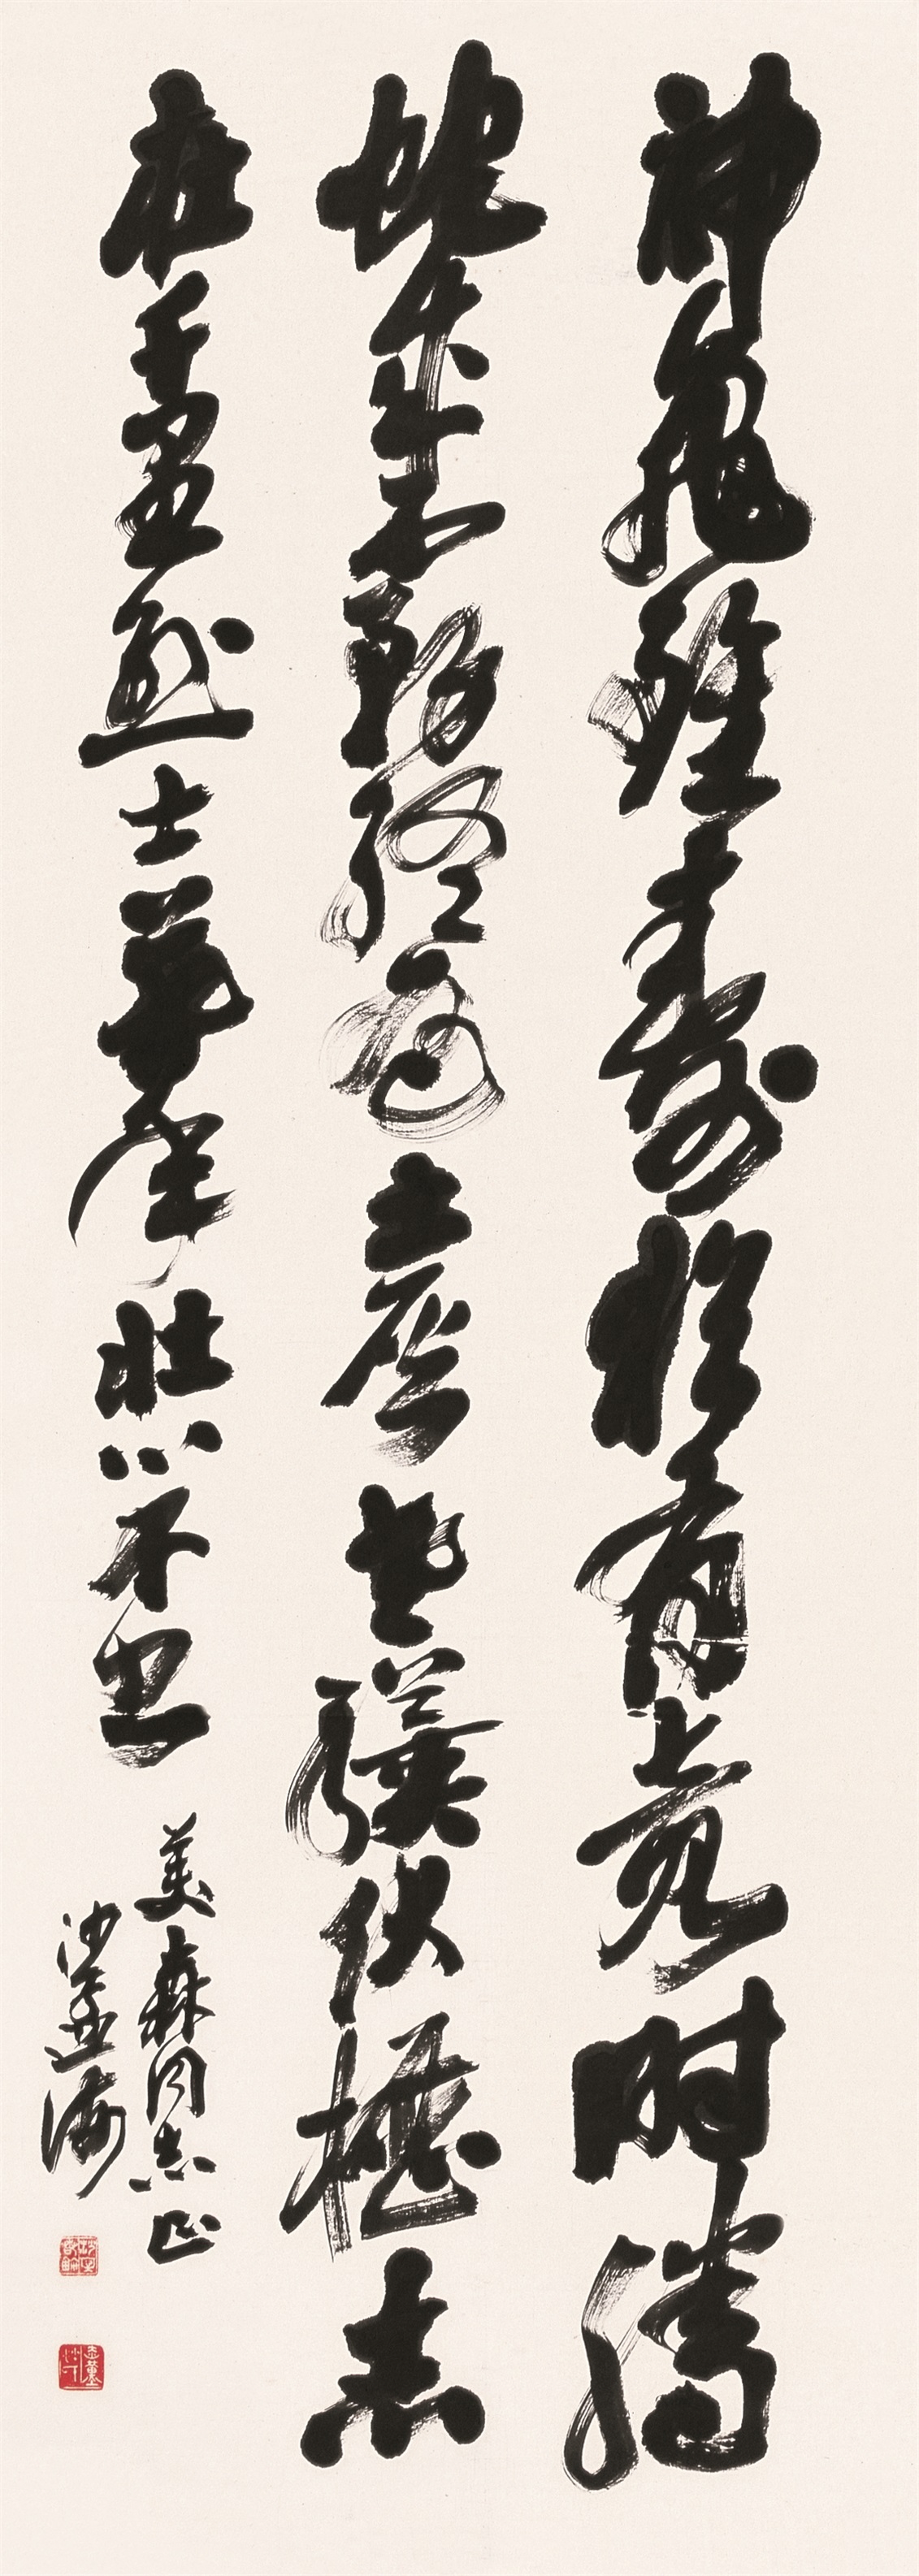 神龜雖壽猶有竟时騰
蛇乘霧終為土灰老驥伏櫪志
在千里烈士暮年壯心不已
美森同志正
沙孟海